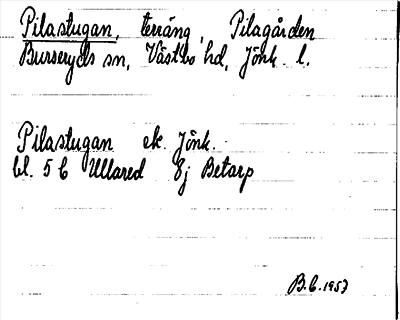 Pilastugan, terräng, Pilagården
Burseryds sn, Västbo hd, Jönk. l.
Pilastugan ek. Jönk.
bl. 5 C Ullared 8j Betarp
B.C. 1953